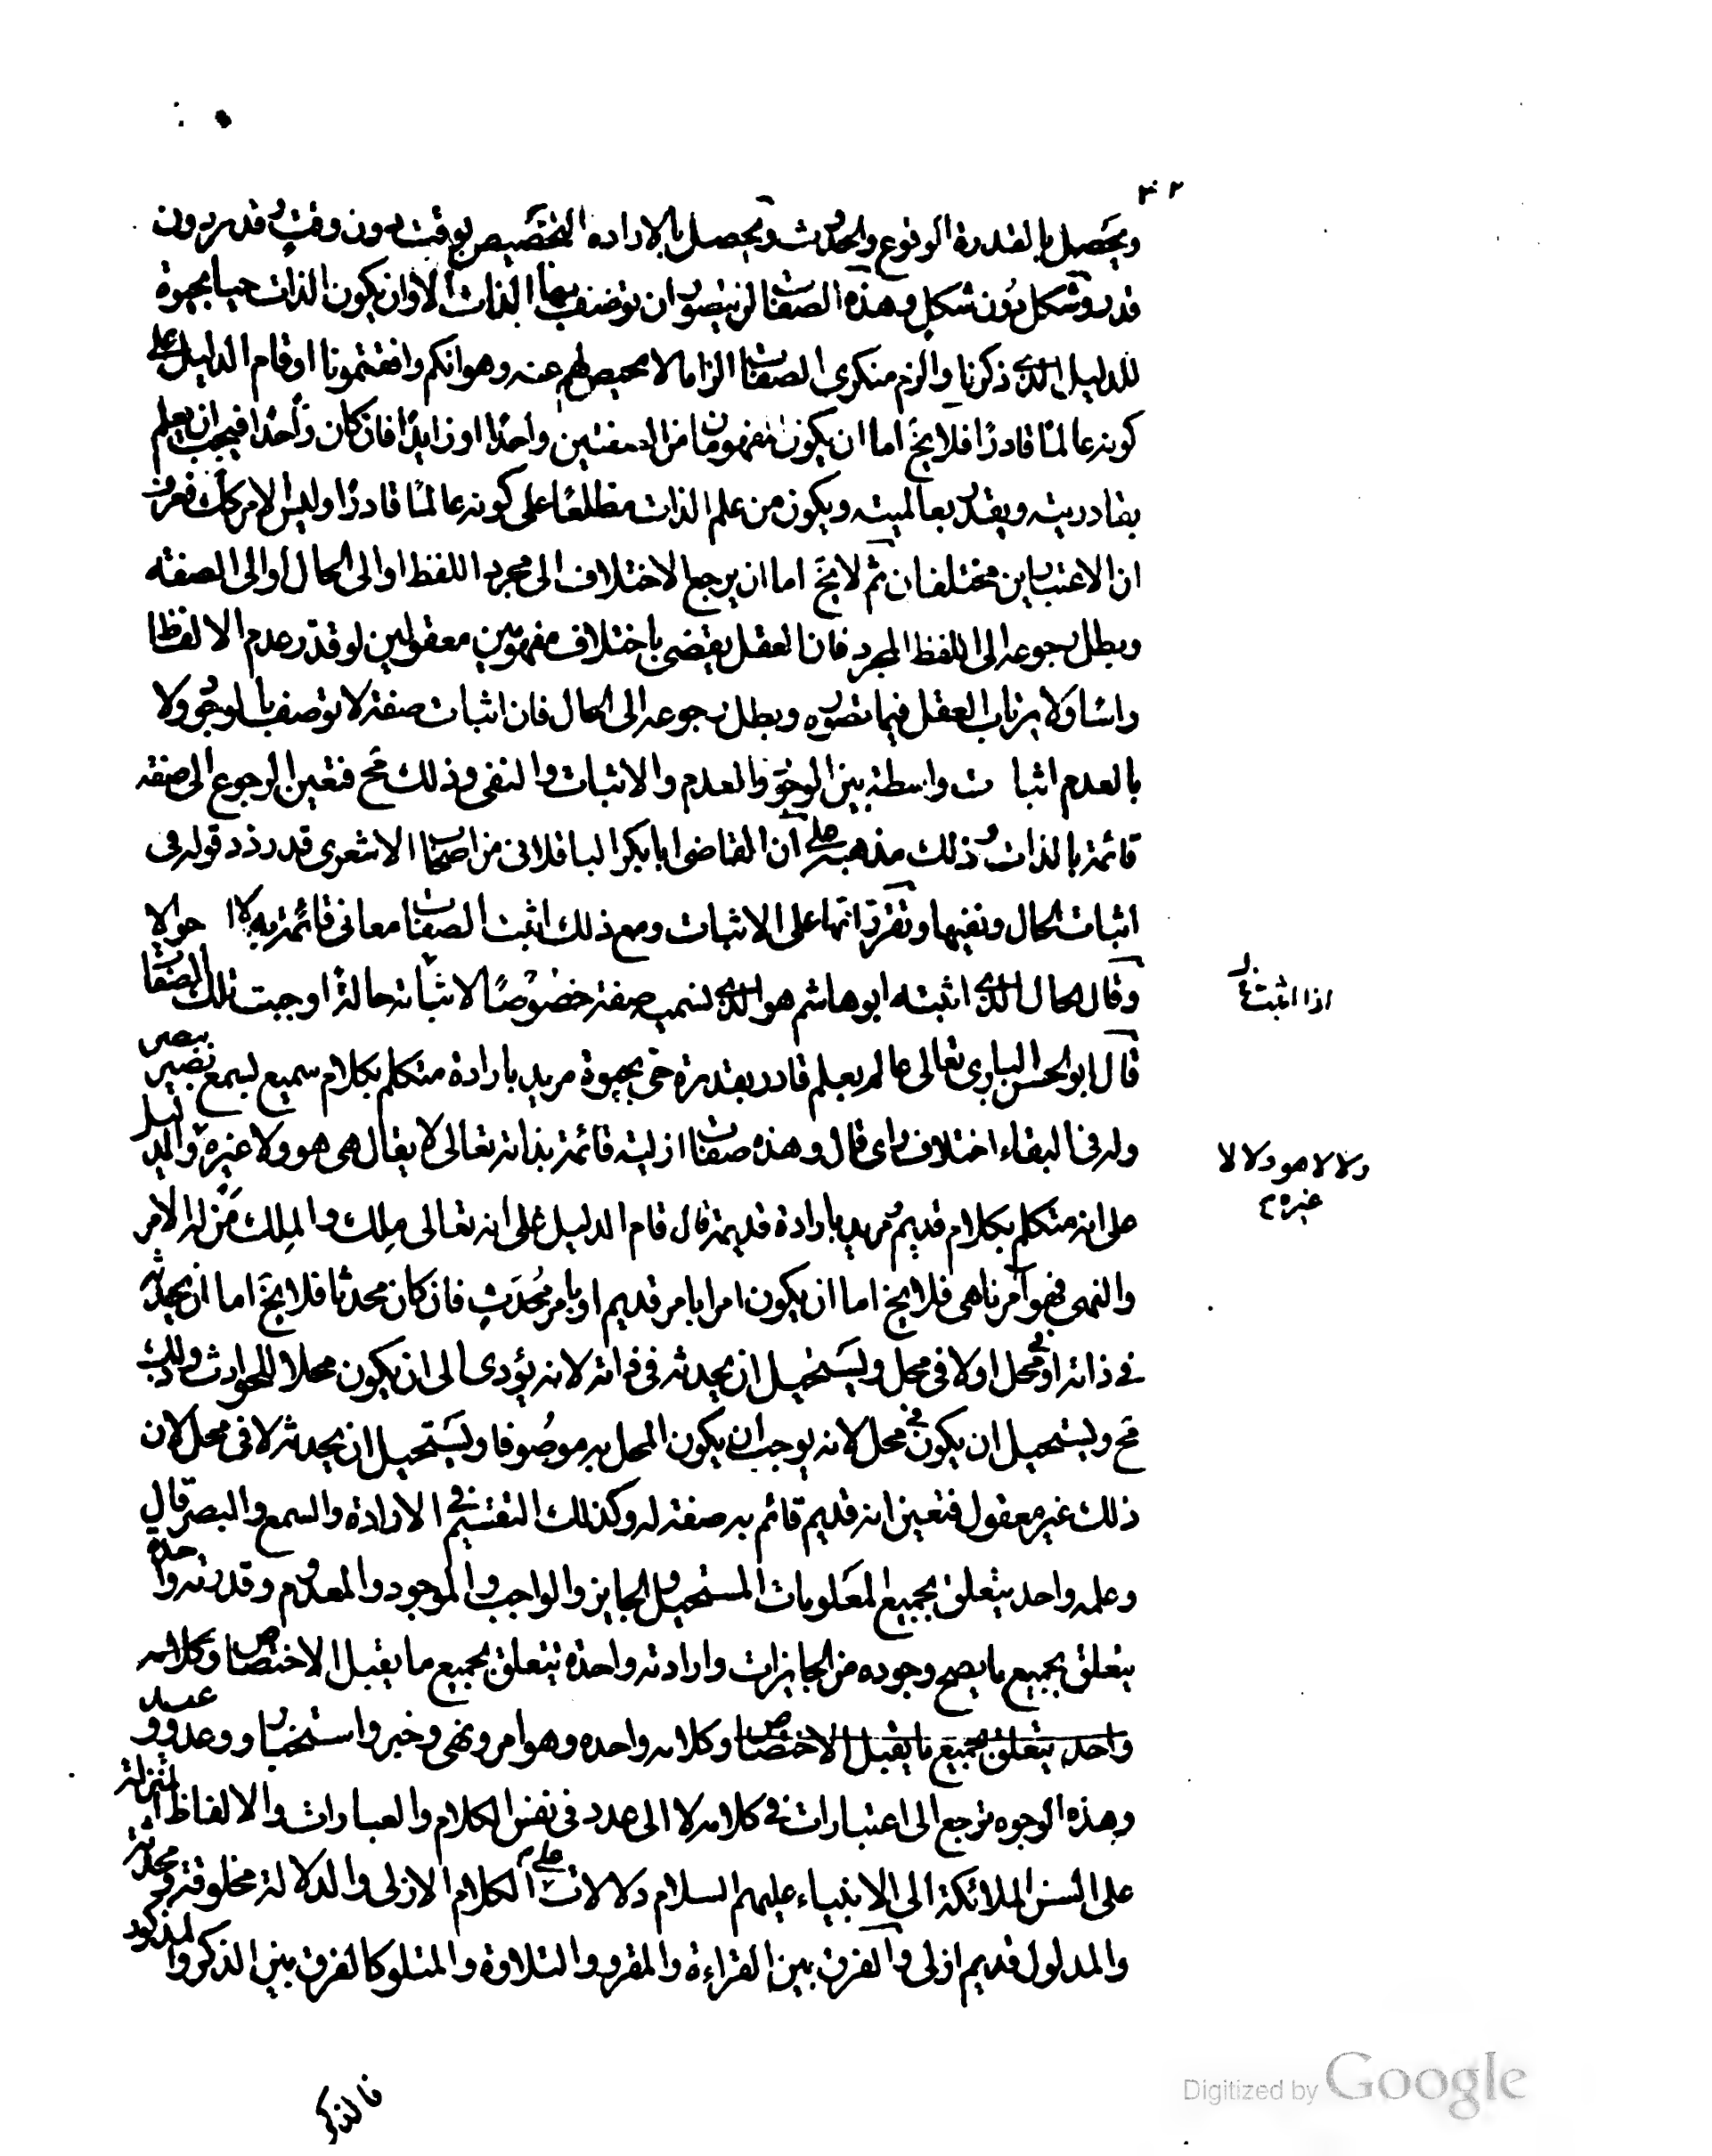 ٣٠٢
ويحصل بالقدرة الوقوع والحدوث ويحصل بالارادة التخصيص بوقت دون وقت وقدر دون
قدر وشكل دون شكل وهذه الصفات لن يتصور ان توصف بها الذات الا وان يكون الذات حيا بحيوة
للدليل الذى ذكرنا والزم منكرى الصفات الزاما لا محيص لهم عنه وهو انكم وافقتمونا او قام الدليل على
كونه عالمًا قادرًا فلا يخ اما ان يكون مفهومان من الصفتين واحدًا او زايدًا فان كان واحدًا فيجب ان يعلم
بقادريته ويقدر بعالميته ويكون من علم الذات مطلعًا على كونه عالمًا قادرًا وليس الامر كك فعرف
ان الاعتبارين مختلفان ثم لا يخ اما ان يرجع الاختلاف الى مجرد اللفظ او الى الحال او الى الصفة
وبطل رجوعه الى اللفظ المجرد فان العقل يقضى باختلاف مفهومين معقولين لو قدر عدم الالفاظ
راسًا ولا يرتاب العقل فيما تصوره وبطل رجوعه الى الحال فان اثبات صفة لا توصف بالوجود ولا
بالعدم اثبا ت واسطة بين الوجود والعدم والاثبات والنفى وذلك مح فتعين الرجوع الى صفة
قائمة بالذات وذلك مذهبه على ان القاضى ابا بكر الباقلانى من اصحاب الاشعرى قد ردد قوله فى
اثبات الحال ونفيها وتقرر انها على الاثبات ومع ذلك اثبت الصفات معانى قائمة به لا ا حوالا
وقال الحال الذى اثبته ابو هاشم هو الذى نسميه صفة خصوصًا لاثباته حالة اوجبت تلك الصفات
اذا اثبت
قال ابو الحسن البارى تعالى عالم بعلم قادر بقدرة حى بحيوة مريد بارادة متكلم بكلام سميع بسمع بصير ببصر
وله فى البقاء اختلاف راى قال وهذه صفات ازلية قائمة بذاته تعالى لا يقال هى هو ولا غيره والدليل
ولا لا هو ولا لا
غيره م
على انه متكلم بكلام قديم ومريد بارادة قديمة قال قام الدليل على انه تعالى ملِك والملِك مَن له الامر
والنهى فهو آمر ناهى فلا يخ اما ان يكون امرا بامر قديم او بامر مُحدَث فان كان محدثا فلا يخ اما ان يحدثه
فى ذاته او فى محل او لا فى محل ويستحيل ان يحدثه فى ذاته لانه يؤدى الى ان يكون محلا للحوادث وذلك
مح ويستحيل ان يكون فى محل لانه يوجب ان يكون المحل به موصُوفا ويستحيل ان يحدثه لا فى محل لان
ذلك غير معقول فتعين انه قديم قائم به صفة له وكذلك التقسيم فى الارادة والسمع والبصر قال
وعلمه واحد يتعلق بجميع المعلومات المستحيل والجايز والواجب والموجود والمعدوم وقدرته واحدة
يتعلق بجميع ما يصح وجوده من الجايزات وارادته واحدة تتعلق بجميع ما يقبل الاختصاص وكلامه
واحد يتعلق بجميع ما يقبل الاختصاص وكلامه واحده وهو امر ونهى وخبر واستخبار ووعد ووعيد
وهذه الوجوه ترجع الى اعتبارات فى كلامه لا الى عدد فى نفس الكلام والعبارات والالفاظ المنزلة
على السن الملائكة الى الانبياء عليهم السلام دلالات على الكلام الازلى والدلالة مخلوقة محدثة
والمدلول قديم ازلى والفرق بين القراءة والمقرو والتلاوة والمتلو كالفرق بين الذكر والمذكور
فالذكر
Digitized by Google